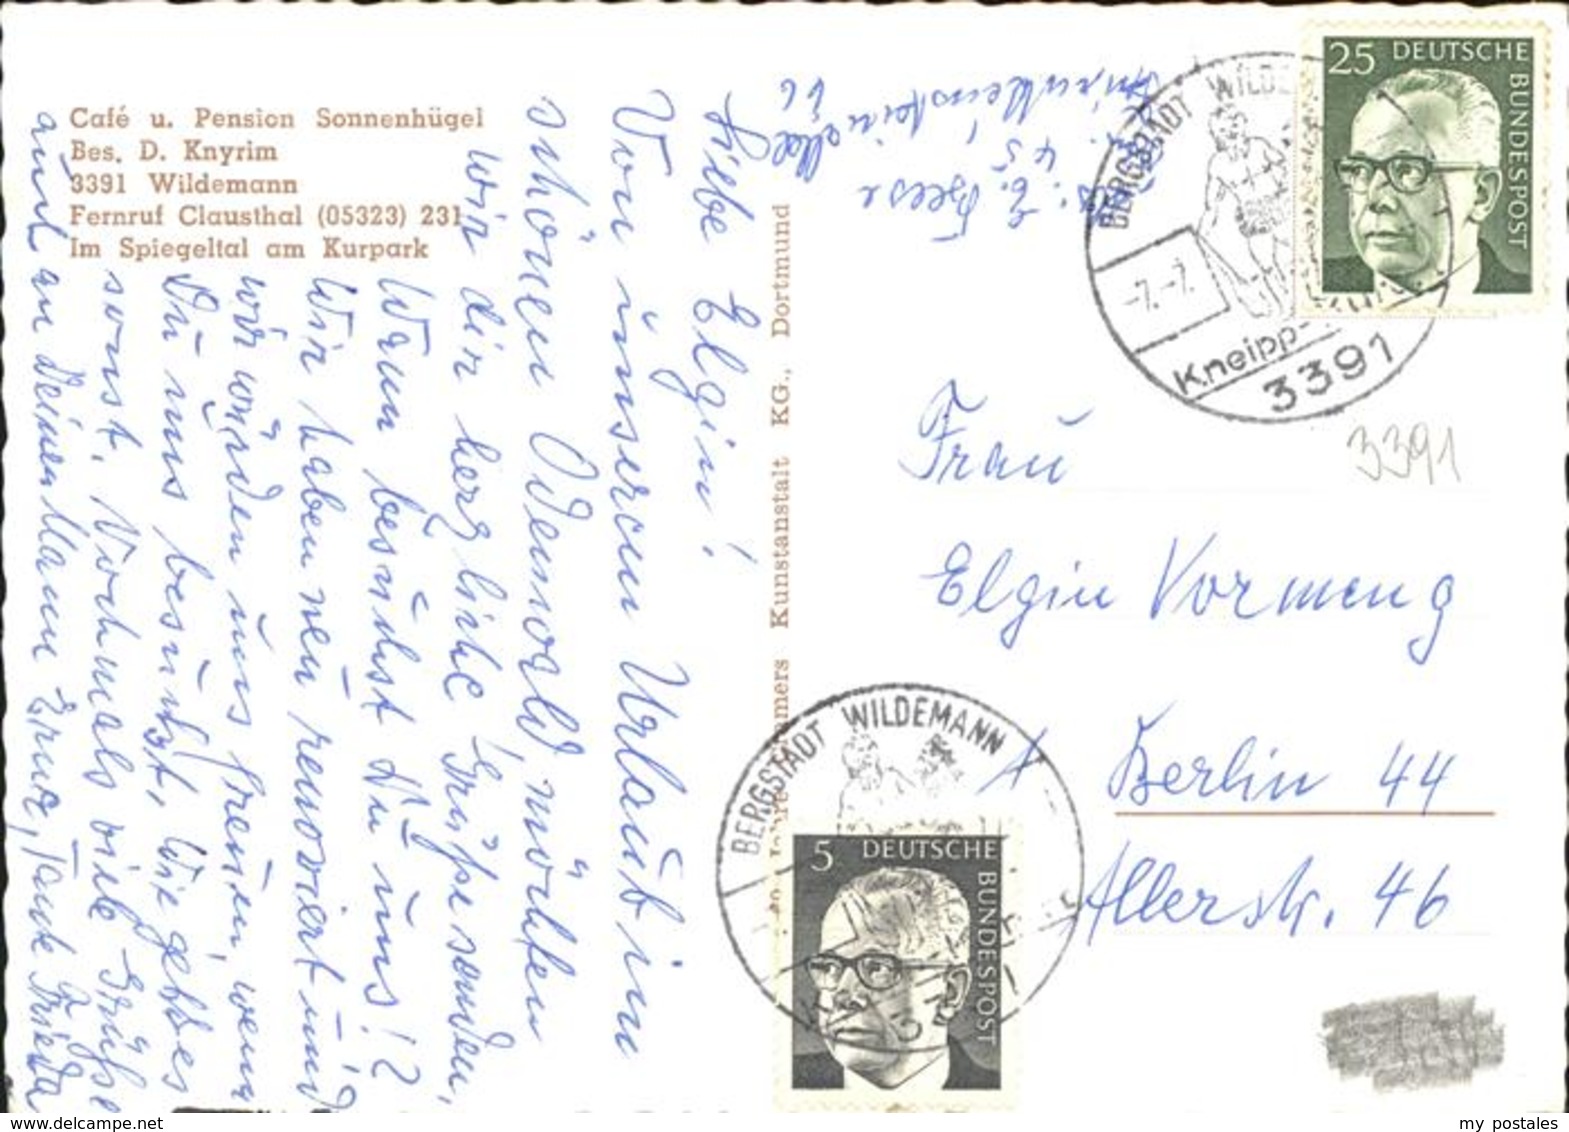 Café u. Pension Sonnenhügel
Bes. D. Knyrim
3391 Wildemann
Fernruf Clausthal (05323) 231
Im Spiegeltal am Kurpark
Liebe Elgin!
Von unserem Urlaub im
schönen Odenwald, möchten
wir dir herzliche Grüße senden,
Wann besuchst Du uns!?
Wir haben neu renoviert und
wir würden uns freuen, wenn
Du uns besuchst, Wie geht es
sonst. Nochmals viele Grüße
auch an deinen Mann Ernst, Tante Frieda
Abs: E. Beese
45
Kunstanstalt KG., Dortmund
BERGSTADT WILDEMANN
-7.-7.
Kneipp-
3391
25 DEUTSCHE
BUNDESPOST
3391
Frau
Elgin Vormeng
1 Berlin 44
Allerstr. 46
BERGSTADT WILDEMANN
5 DEUTSCHE
BUNDESPOST
my postales